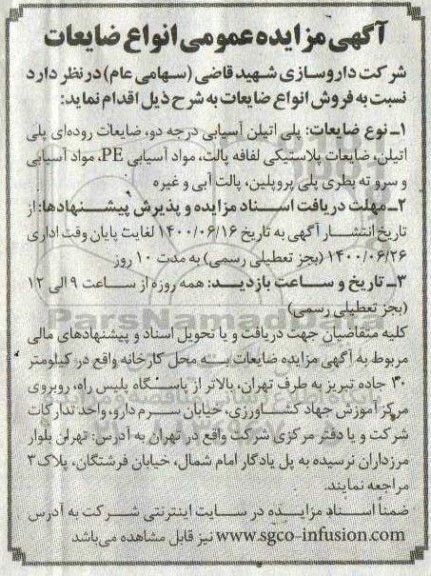 آگهی مزایده عمومی انواع ضایعات
شرکت داروسازی شهید قاضی (سهامی عام) در نظر دارد
نسبت به فروش انواع ضایعات به شرح ذیل اقدام نماید:
۱ـ نوع ضایعات: پلی اتیلن آسیابی درجه دو، ضایعات روده‌ای پلی
اتیلن، ضایعات پلاستیکی لفافه پالت، مواد آسیابی PE، مواد آسیابی
و سرو ته بطری پلی پروپلین، پالت آبی و غیره
۲ـ مهلت دریافت اسناد مزایده و پذیرش پیشنهادها: از
تاریخ انتشار آگهی به تاریخ ۱۴۰۰/۰۶/۱۶ لغایت پایان وقت اداری
۱۴۰۰/۰۶/۲۶ (بجز تعطیلی رسمی) به مدت ۱۰ روز
۳ـ تاریخ و ساعت بازدید: همه روزه از ساعت ۹ الی ۱۲
(بجز تعطیلی رسمی)
ParsNamadData
کلیه متقاضیان جهت دریافت و یا تحویل اسناد و پیشنهادهای مالی
مربوط به آگهی مزایده ضایعات به محل کارخانه واقع در کیلومتر
۳۰ جاده تبریز به طرف تهران، بالاتر از پاسگاه پلیس راه، روبروی
مرکز آموزش جهاد کشاورزی، خیابان سرم دارو، واحد تدارکات
شرکت و یا دفتر مرکزی شرکت واقع در تهران به آدرس: تهران بلوار
مرزداران نرسیده به پل یادگار امام شمال، خیابان فرشتگان، پلاک ۳
مراجعه نمایند.
ضمناً اسناد مزایده در سایت اینترنتی شرکت به آدرس
www.sgco-infusion.com نیز قابل مشاهده می‌باشد